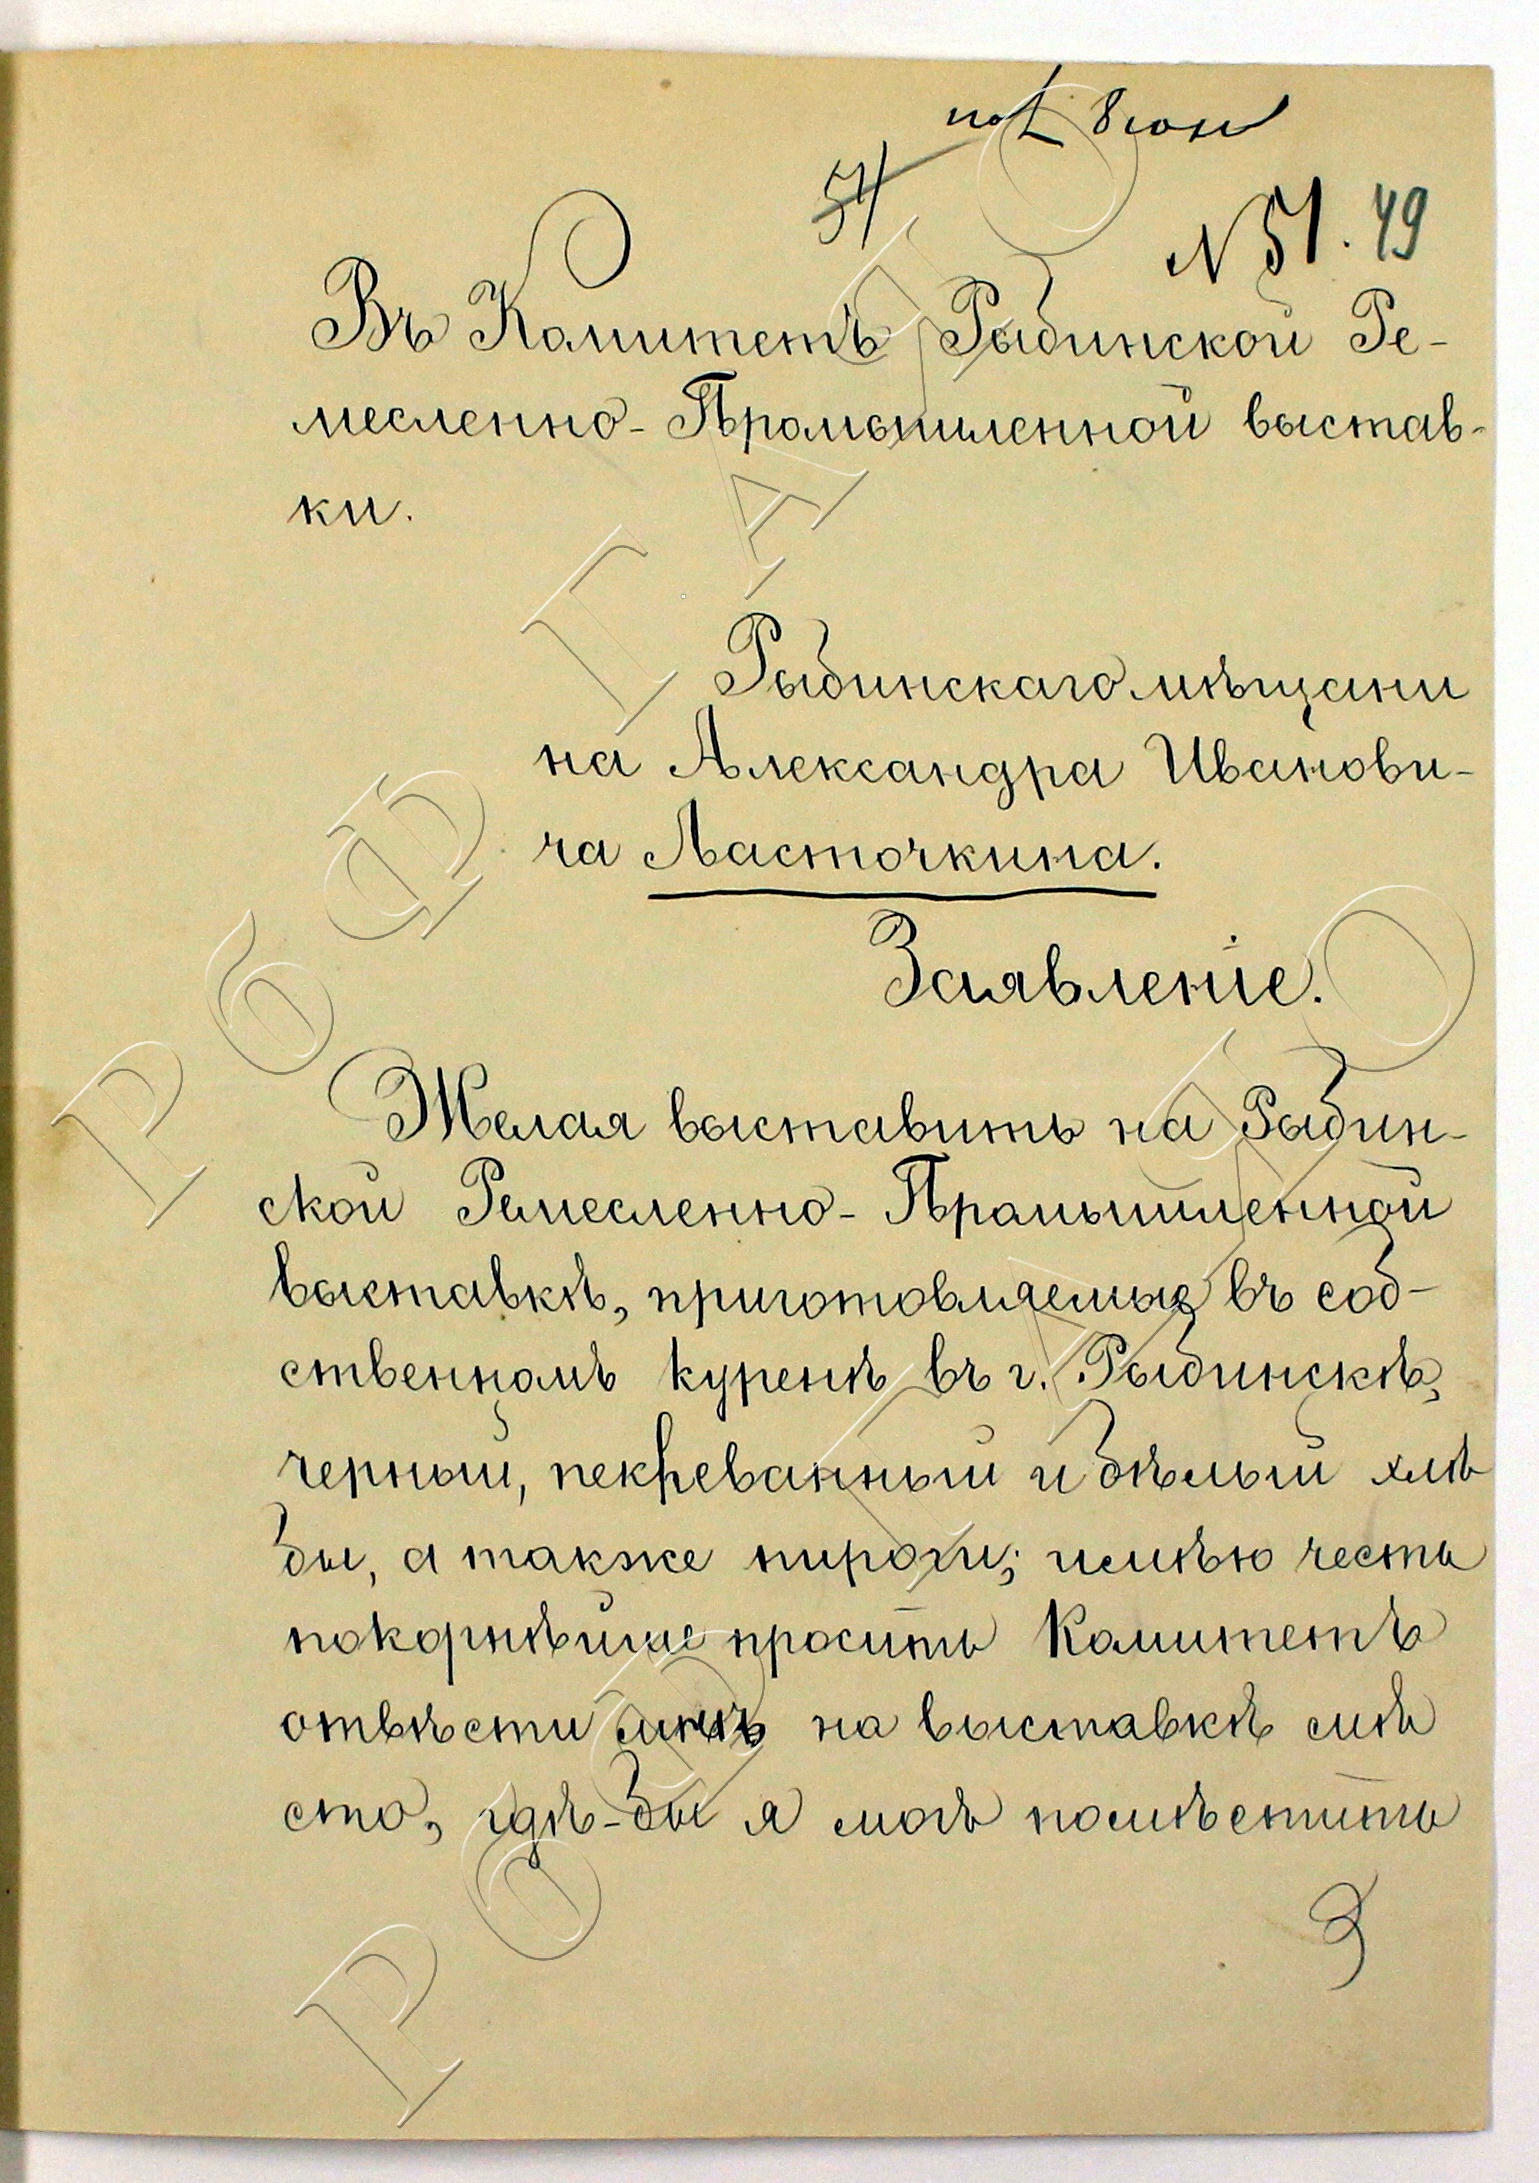 пол. 8 юн
51
N 51. 49
Въ Комитетъ Рыбинской Ре-
месленно-Промышленной выстав-
ки.
Рыбинскаго мѣщани
на Александра Иванови-
ча Ласточкина.
Заявленіе.
Желая выставить на Рыбин-
ской Ремесленно-Промышленной
выставкѣ, приготовляемые въ соб-
ственномъ куренѣ въ г. Рыбинскѣ,
черный, пекреванный и бѣлый хлѣ
бы, а также пироги; имѣю честь
покорнѣйше просить Комитетъ
отвѣсти мнѣ на выставкѣ мѣ
сто, гдѣ-бы я могъ помѣстить
3
РбФ ГАЯО
РбФ ГАЯО